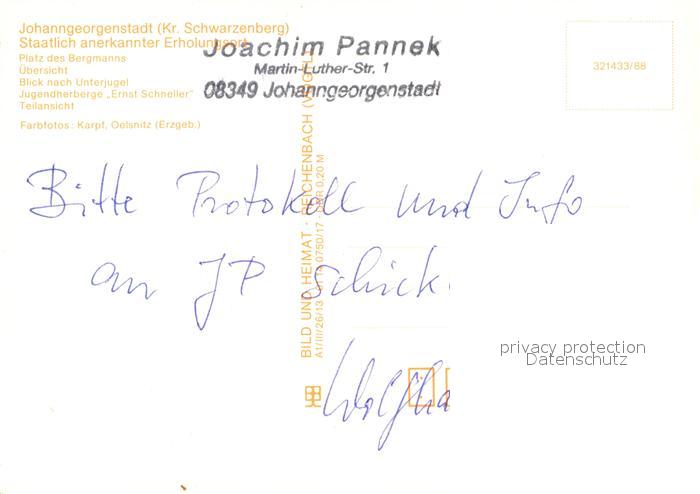 Johanngeorgenstadt (Kr. Schwarzenberg)
Staatlich anerkannter Erholungsort
Platz des Bergmanns
Übersicht
Blick nach Unterjugel
Jugendherberge „Ernst Schneller"
Teilansicht
Farbfotos: Karpf, Oelsnitz (Erzgeb.)
Joachim Pannek
Martin-Luther-Str. 1
08349 Johanngeorgenstadt
321433/86
Bitte Protokoll und Info
an JP schick
BILD UND HEIMAT · REICHENBACH (VOGTL)
A1/III/26/13
0,20 M
privacy protection
Datenschutz